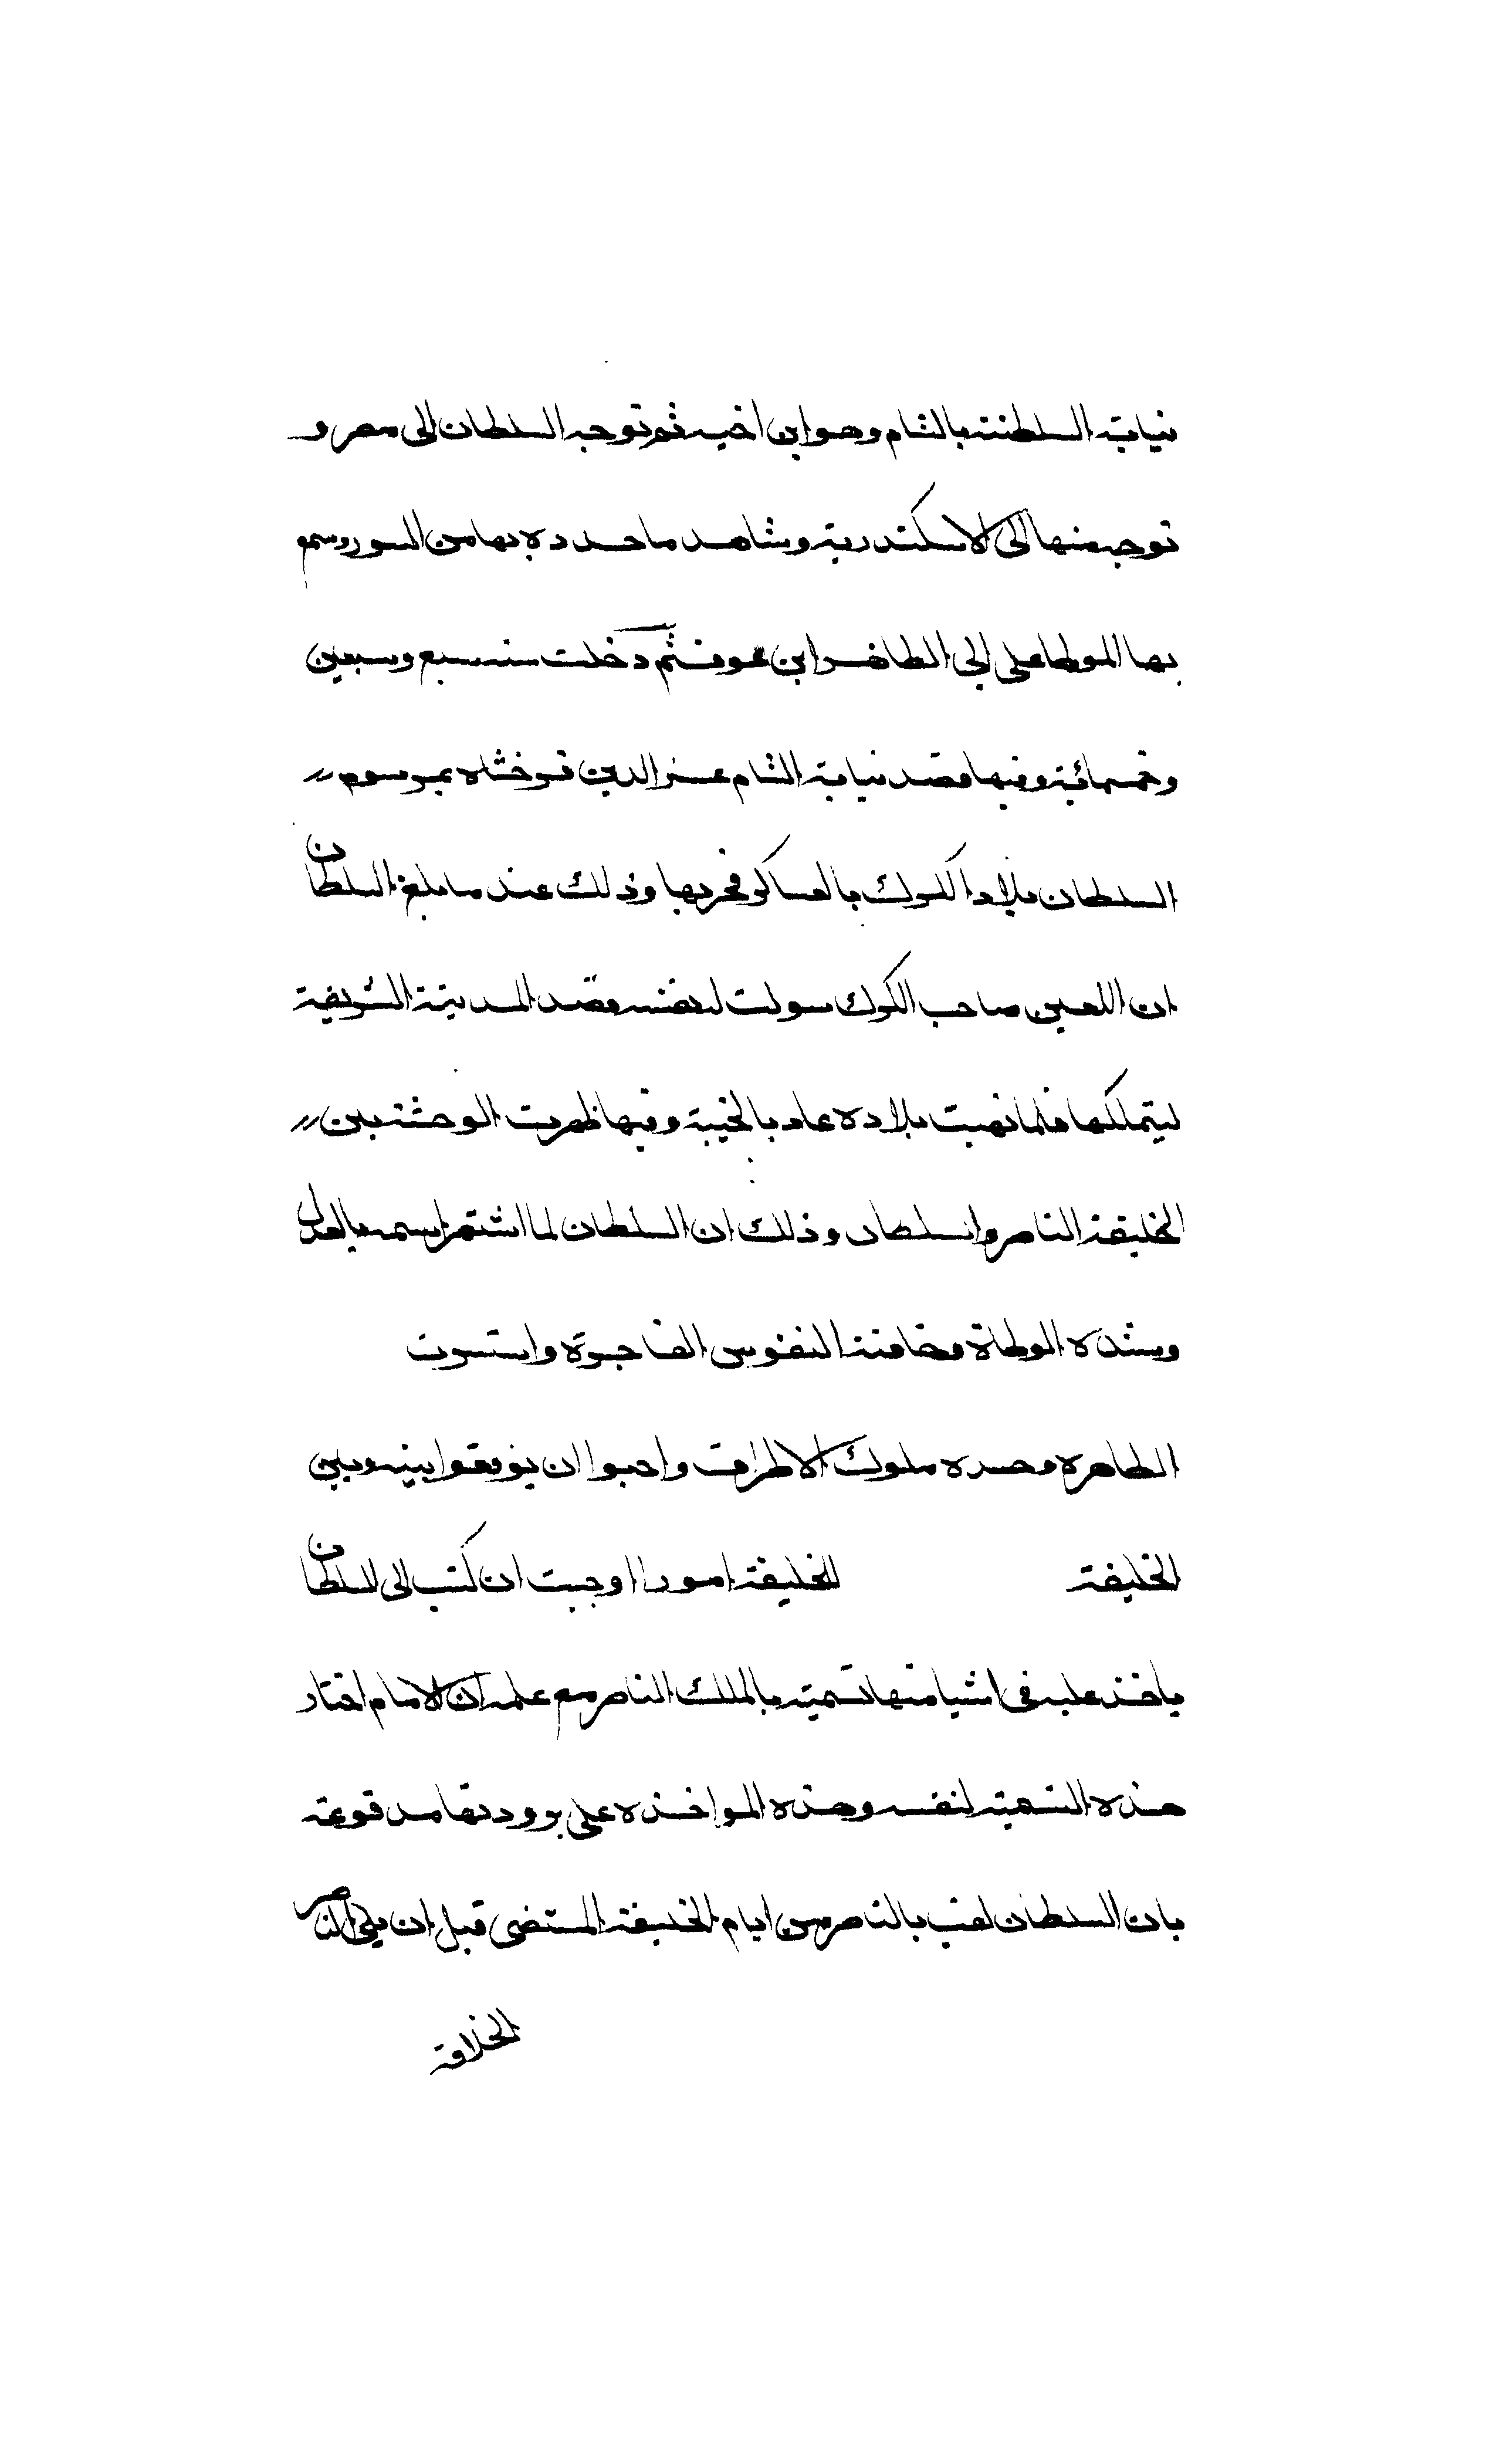 نيابة السلطنة بالشام وهو ابن اخيه ثم توجه السلطان الى مصر و
توجه منها الى الاسكندرية وشاهد ما حدده بها من السور وسمع
بها الموطا على ابى الطاهر ابن عوف ثم دخلت سنه سبع وسبعين
وخمسمائية وفيها قصد نيابة الشام عز الدين فرخشاه بمرسوم
السلطان بلاد الكرك بالعساكر فخربها وذلك عند ما بلغ السلطان
ان اللعين صاحب الكرك سولت له نفسه قصد المدينة الشريفة
ليتملكها فلما نهبت بلاده عاد بالخيبة وفيها ظهرت الوحشة بين
الخليفة الناصر والسلطان وذلك ان السلطان لما اشتهر اسمه بالعدل
وشدة الوطاة وخافته النفوس الفاجرة واستسرت
الطاهره وحسده ملوك الاطراف واحبوا ان يوقعوا بينه وبين
الخليفة للخليفة امورا اوجبت ان كتب الى السلطان
ياخذ عليه فى اشيا منها تسميته بالملك الناصر مع علمه ان الامام اختار
هذه التسمية لنفسه وهذه المواخذه على برودتها مدفوعة
بان السلطان لقب بالناصر من ايام الخليفة المستضى قبل ان يلى الناصر
الخلافة